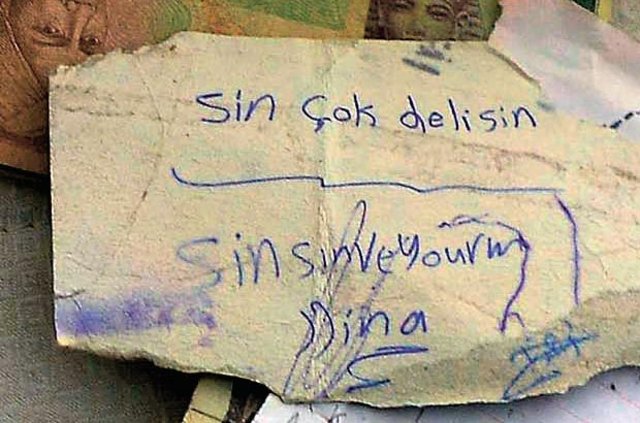 sin çok delisin
sin sinveyourm
Dina